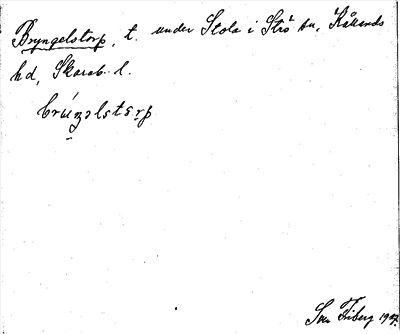 Bryngelstorp, t. under Stola i Strö sn, Kållands
hd, Skarab. l.
brúŋəlstɔrp
Sven Friberg 1907.